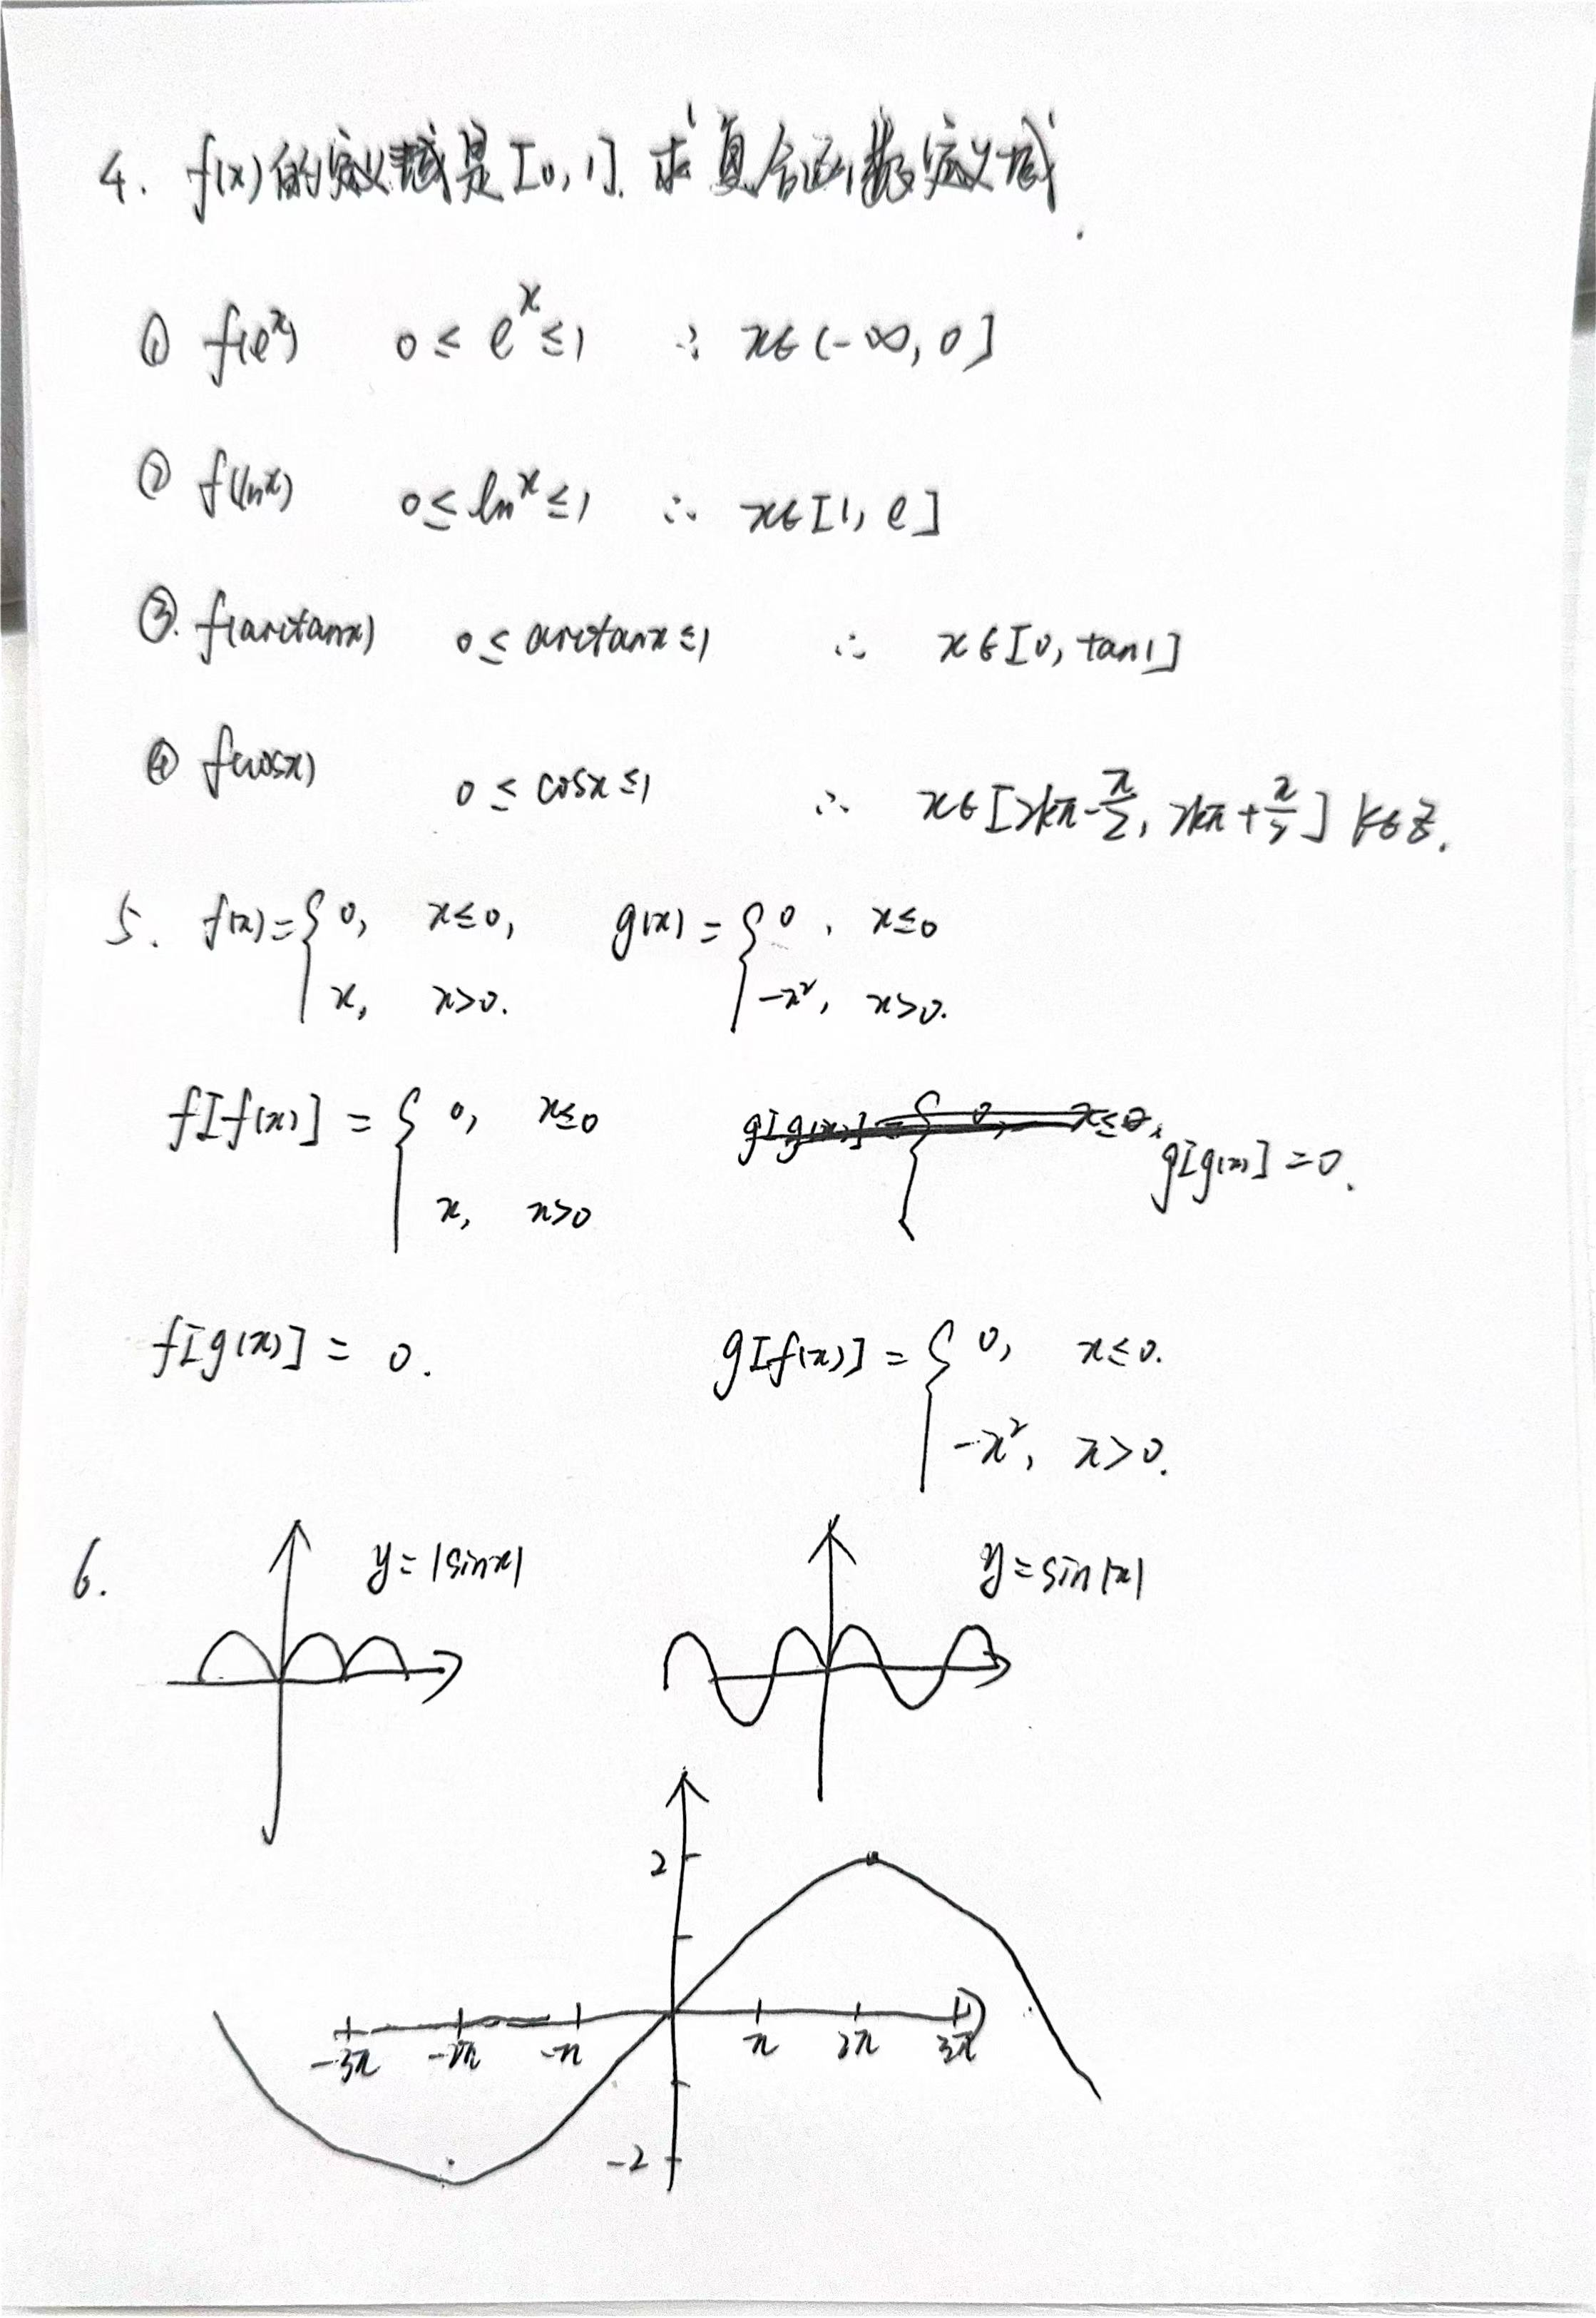 4. f(x)的定义域是[0,1].求复合函数定义域.
① f(eˣ) 0≤eˣ≤1 ∴ x∈(-∞,0]
② f(lnx) 0≤lnx≤1 ∴ x∈[1,e]
③. f(arctanx) 0≤arctanx≤1 ∴ x∈[0,tan1]
④ f(cosx) 0≤cosx≤1 ∴ x∈[2kπ-π/2, 2kπ+π/2] k∈Z.
5. f(x)={0, x≤0, g(x)={0, x≤0
x, x>0. -x², x>0.
f[f(x)]={0, x≤0 g[g(x)]={0, x≤0. g[g(x)]=0.
x, x>0
f[g(x)]=0. g[f(x)]={0, x≤0.
-x², x>0.
6. y=|sinx| y=sin|x|
2
-3π -2π -π π 2π 3π
-2